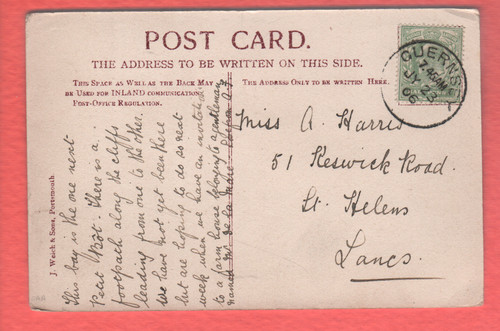 POST CARD.
THE ADDRESS TO BE WRITTEN ON THIS SIDE.
THIS SPACE AS WELL AS THE BACK MAY
BE USED FOR INLAND COMMUNICATION
POST-OFFICE REGULATION.
THE ADDRESS ONLY TO BE WRITTEN HERE.
GUERNS
7.45AM
JY 23
6
Miss A. Harris
51 Keswick Road.
St. Helens
Lancs.
This bay is the one next
Petit Bôt. There is a
footpath along the cliffs
leading from one to the other.
We have not yet been here
but are hoping to do so next
week when we have an invitation
to a farm house belonging to a gentleman
named Mr de la Mare.
J. Welch & Sons, Portsmouth